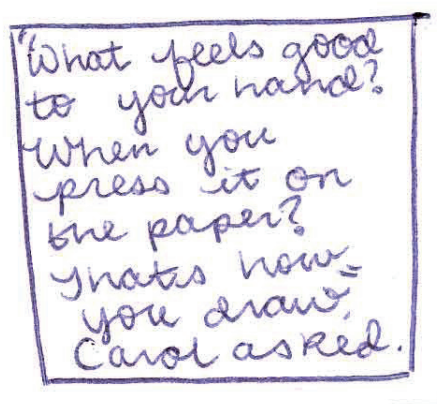 "What feels good
to your hand?
When you
press it on
the paper?
Thats how
you draw"
Carol asked.